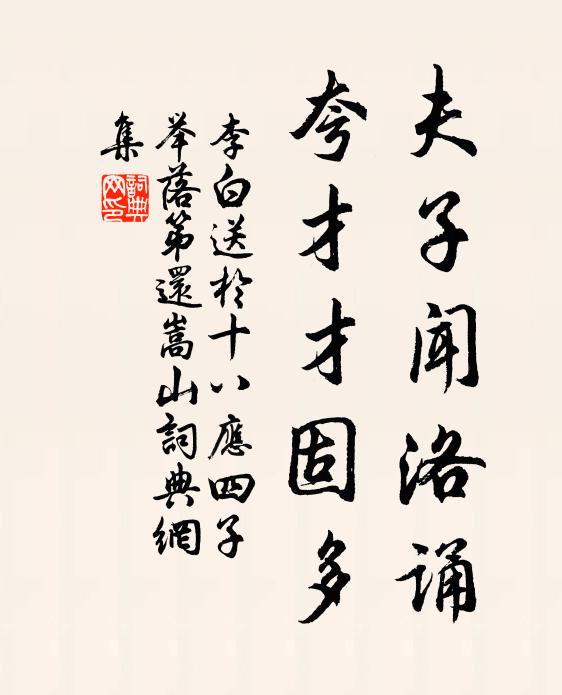 夫子闻洛诵
夸才才固多
李白送於十八應四子
举落第還嵩山詞典網
集
詞典
网印